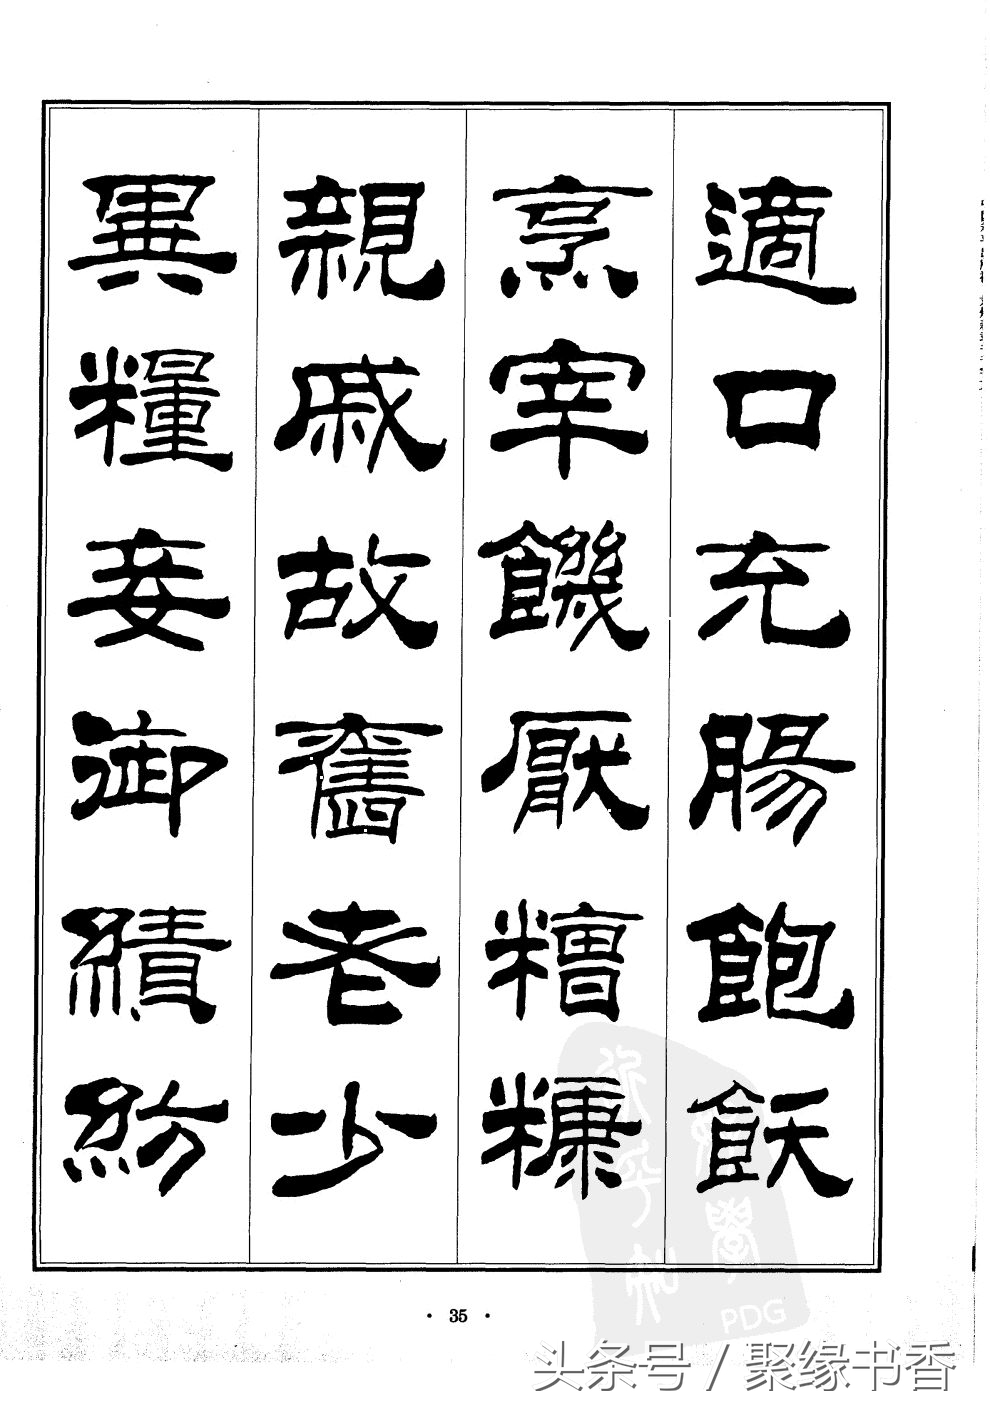 適口充腸飽飫
烹宰饑厭糟糠
親戚故舊老少
異糧妾御績紡
· 35 ·
PDG
头条号 / 聚缘书香